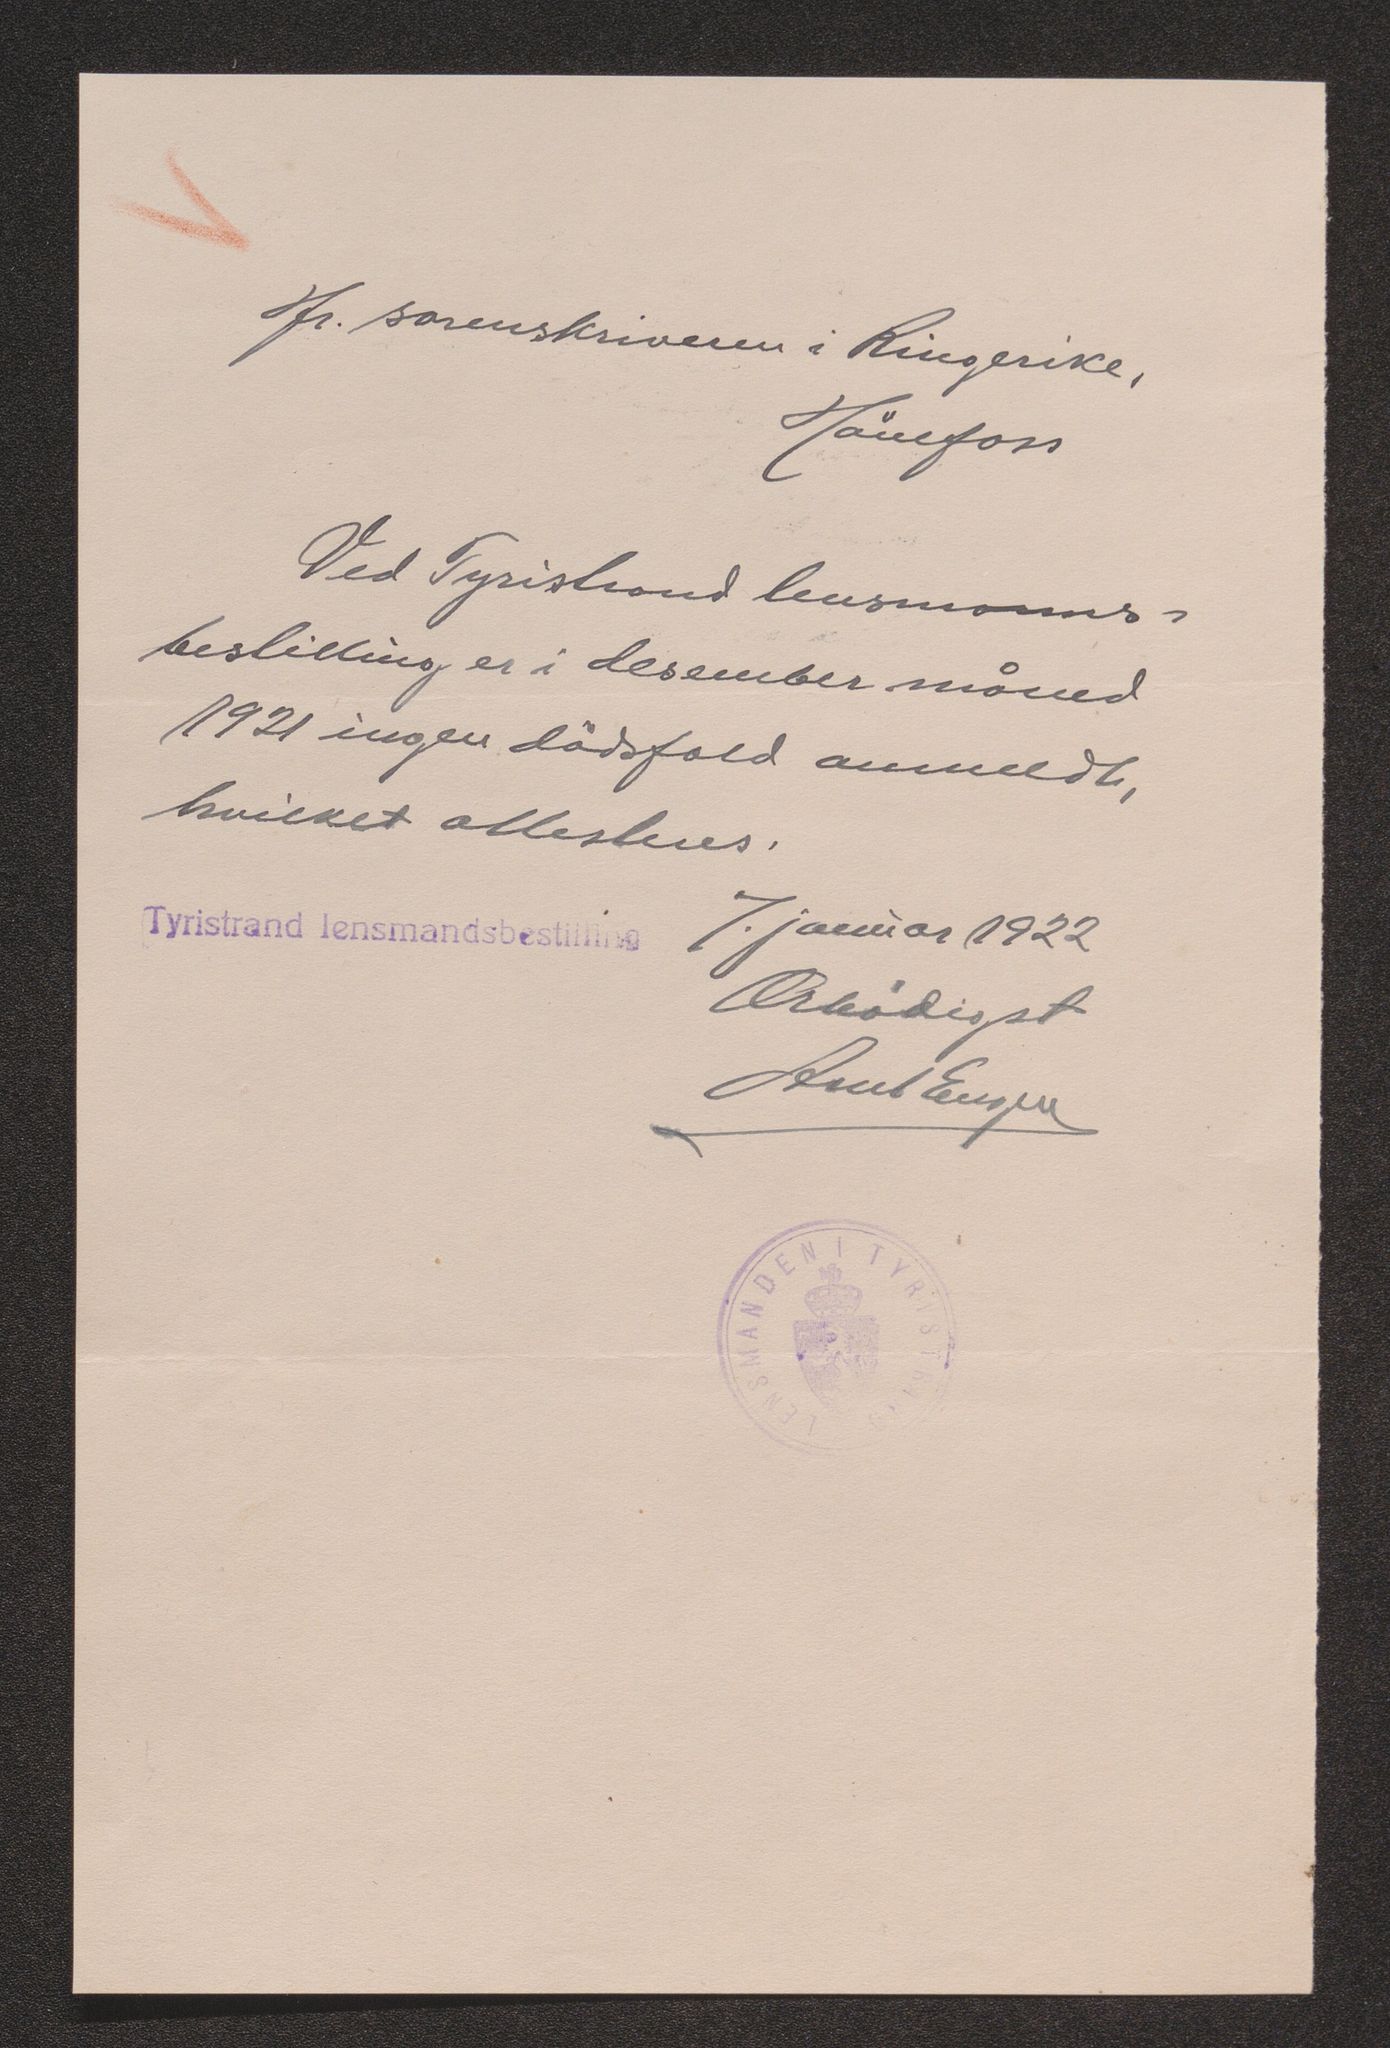 Hr. sorenskriveren i Ringerike,
Hönefoss
Ved Tyristrand lensmanns-
bestilling er i desember måned
1921 ingen dödsfald anmeldt,
hvilket attesteres.
Tyristrand lensmandsbestilling
7. januar 1922
Ærbödigst
Enger
LENSMANDEN I TYRISTRAND